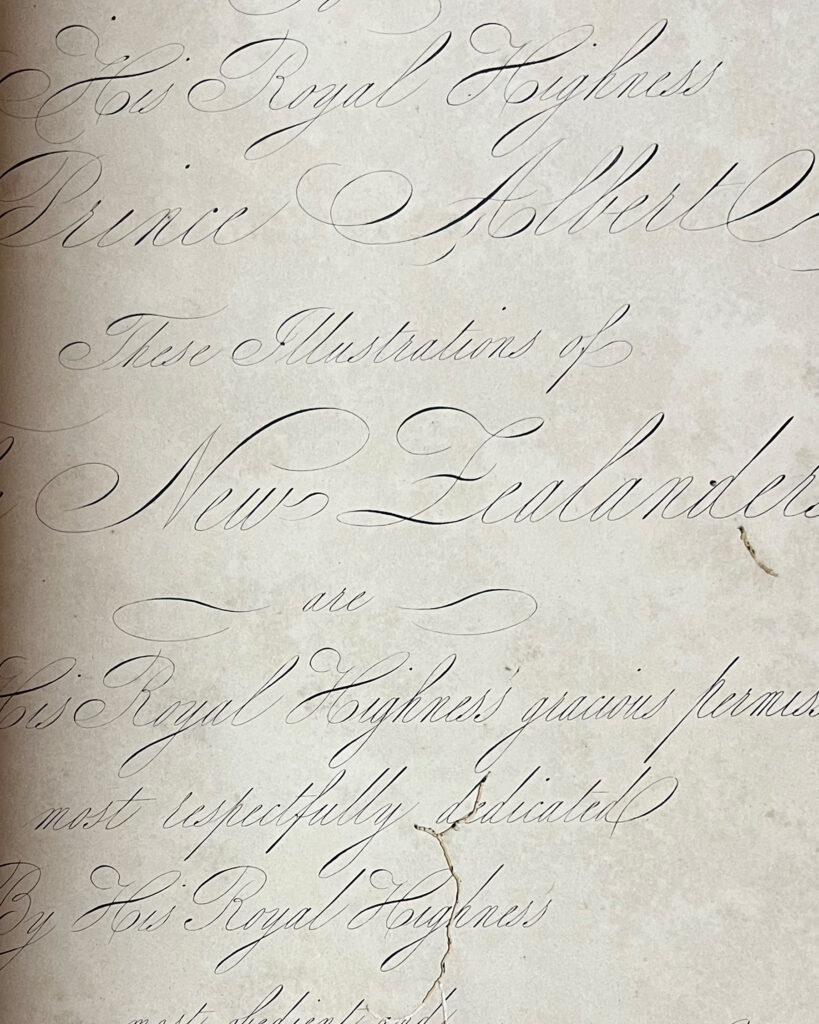 To
His Royal Highness
Prince Albert
These Illustrations of
New Zealanders
are
His Royal Highness' gracious permiss
most respectfully dedicated
By His Royal Highness
most obedient and